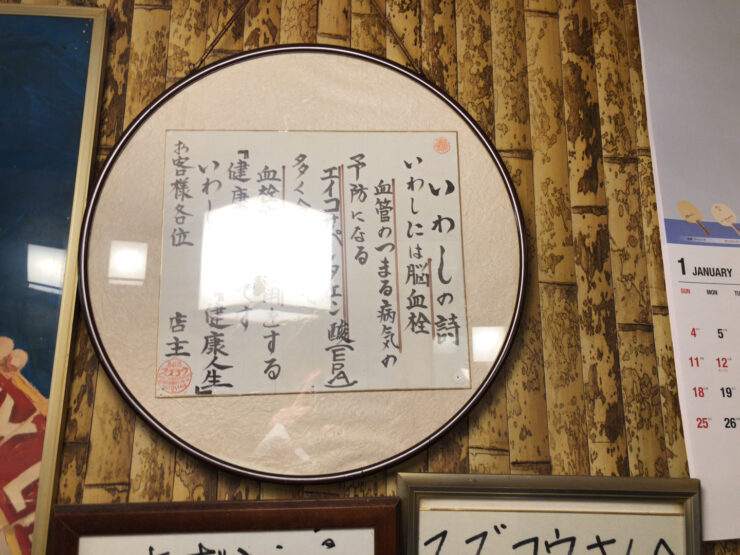 いわしの詩
いわしには脳血栓
血管のつまる病気の
予防になる
エイコサペンタエン酸(EPA)
多く
血栓 とする
健康 です
いわし 『健康人生』
お客様各位
店主
1 JANUARY
SUN MON TU
4 5
11 12
18 19
25 26
スズコウさんへ